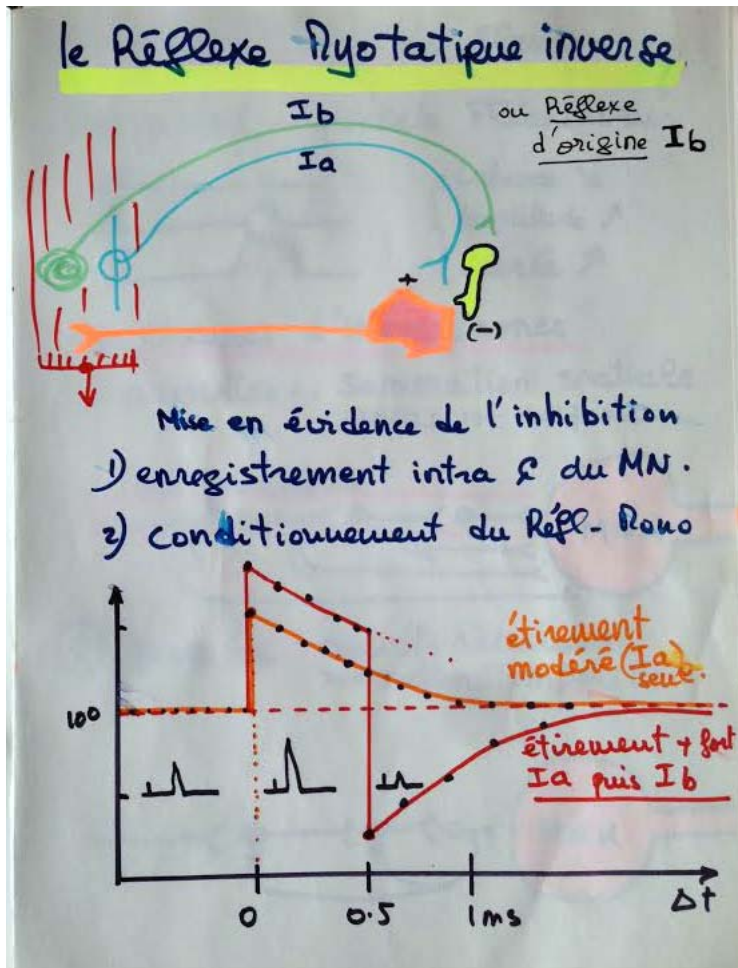 le Réflexe Myotatique inverse
ou Réflexe
d'origine Ib
Ib
Ia
+
(-)
Mise en évidence de l'inhibition
1) enregistrement intra ₵ du MN.
2) conditionnement du Réfl-Mono
étirement
modéré (Ia)
seul.
100
étirement + fort
Ia puis Ib
0
0.5
1ms
Δt